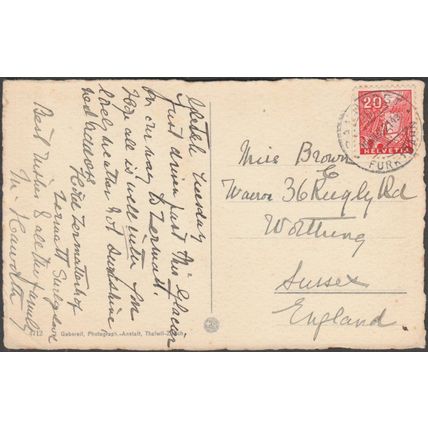 Tuesday
Just driven past this Glacier
on our way to Zermatt.
Hope all is well with you
lovely weather hot sunshine
Hotel Zermatterhof
Zermatt
Best wishes & all the family
M.
Miss Brown
36 Rugby Rd
Worthing
Sussex
England
20
HELVETIA
FURKA
Gaberell, Photograph.-Anstalt, Thalwil-Zürich